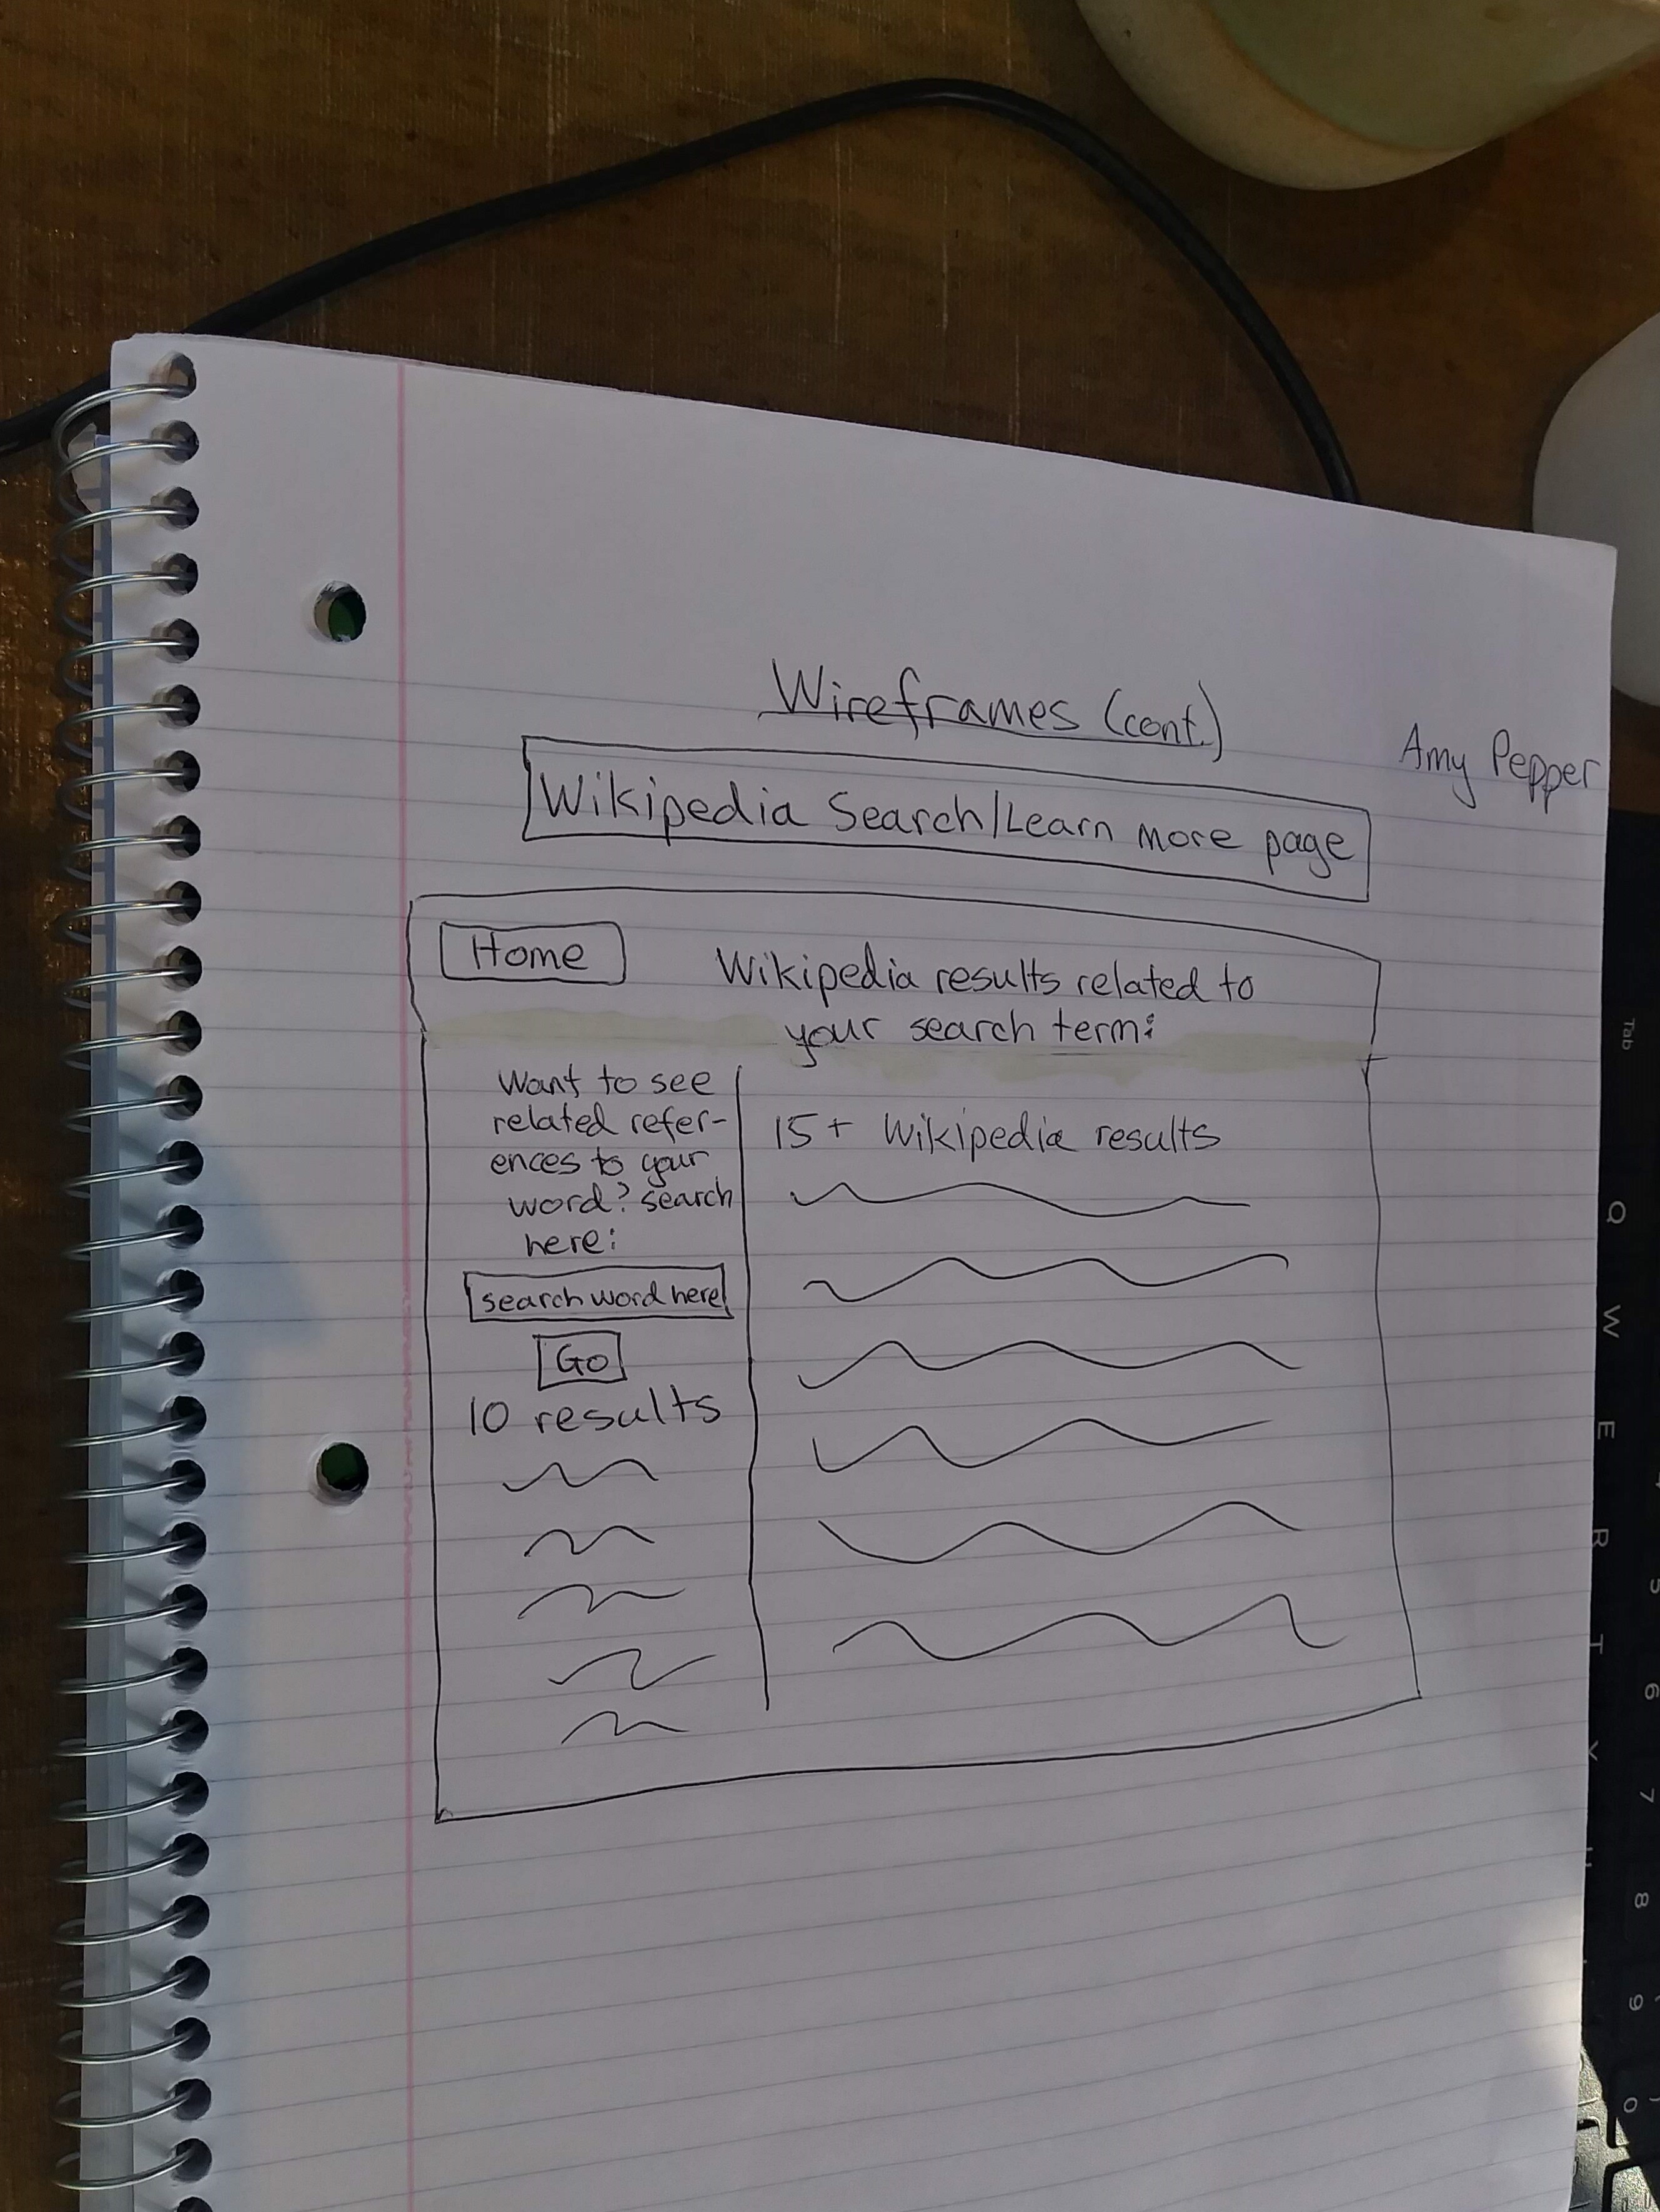 Wireframes (cont.)
Amy Pepper
Wikipedia Search/Learn more page
Home
Wikipedia results related to
your search term:
Want to see
related refer-
ences to your
word? search
here:
search word here
Go
10 results
15+ Wikipedia results
Tab
Q
W
E
R
5
T
6
Y
7
8
9
0